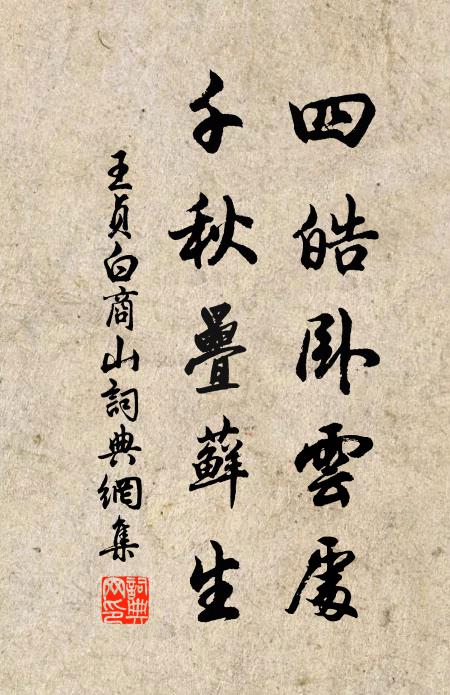 四皓卧雲處
千秋疊蘚生
王貞白商山詞典網集
詞典网印